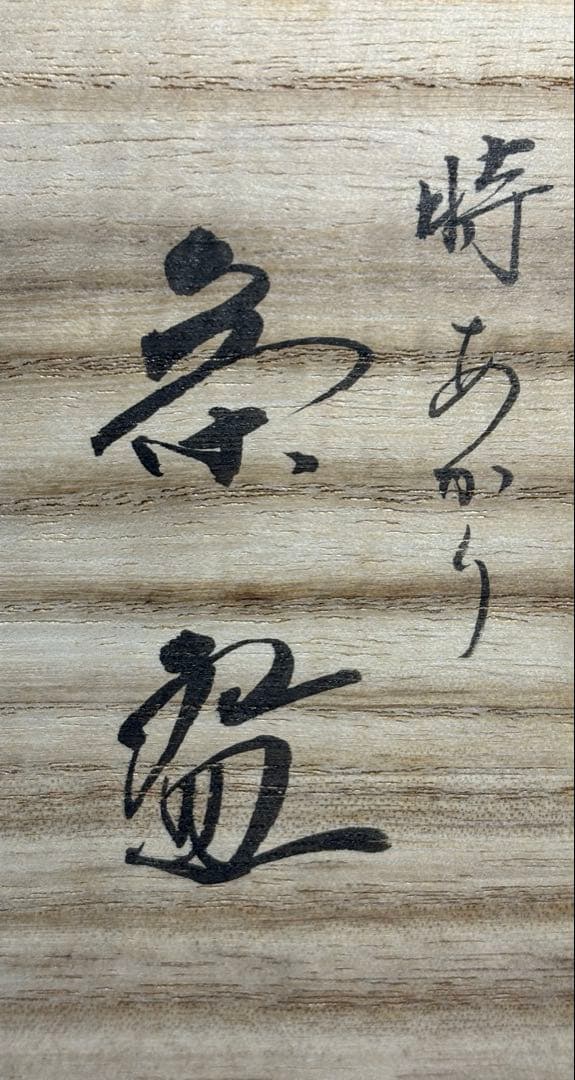 時あかり
茶盌